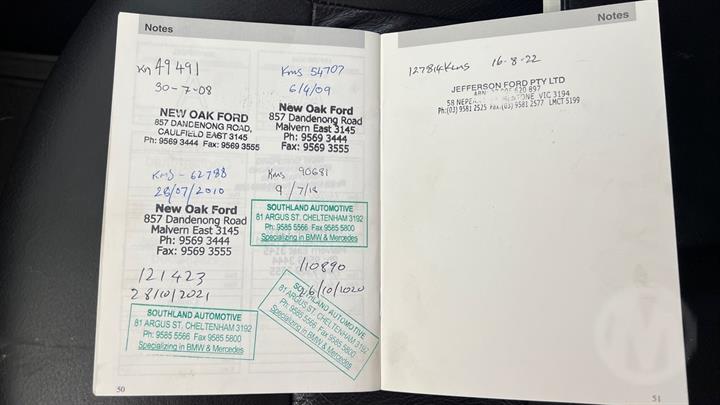 Notes
Km 49491
30-7-08
NEW OAK FORD
857 DANDENONG ROAD,
CAULFIELD EAST 3145
Ph: 9569 3444 Fax: 9569 3555
Kms 54707
6/4/09
New Oak Ford
857 Dandenong Road
Malvern East 3145
Ph: 9569 3444
Fax: 9569 3555
Kms - 62788
28/07/2010
New Oak Ford
857 Dandenong Road
Malvern East 3145
Ph: 9569 3444
Fax: 9569 3555
Kms 90681
9/7/18
SOUTHLAND AUTOMOTIVE
81 ARGUS ST. CHELTENHAM 3192
Ph: 9585 5566 Fax 9585 5800
Specializing in BMW & Mercedes
121423
28/10/2021
SOUTHLAND AUTOMOTIVE
81 ARGUS ST. CHELTENHAM 3192
Ph: 9585 5566 Fax 9585 5800
Specializing in BMW & Mercedes
110890
26/10/2020
SOUTHLAND AUTOMOTIVE
81 ARGUS ST. CHELTENHAM 3192
Ph: 9585 5566 Fax 9585 5800
Specializing in BMW & Mercedes
50
Notes
127814 Kms 16-8-22
JEFFERSON FORD PTY LTD
ABN 620 897
58 VIC 3194
Ph:(03) 9581 2525 Fax:(03) 9581 2577 LMCT 5199
51